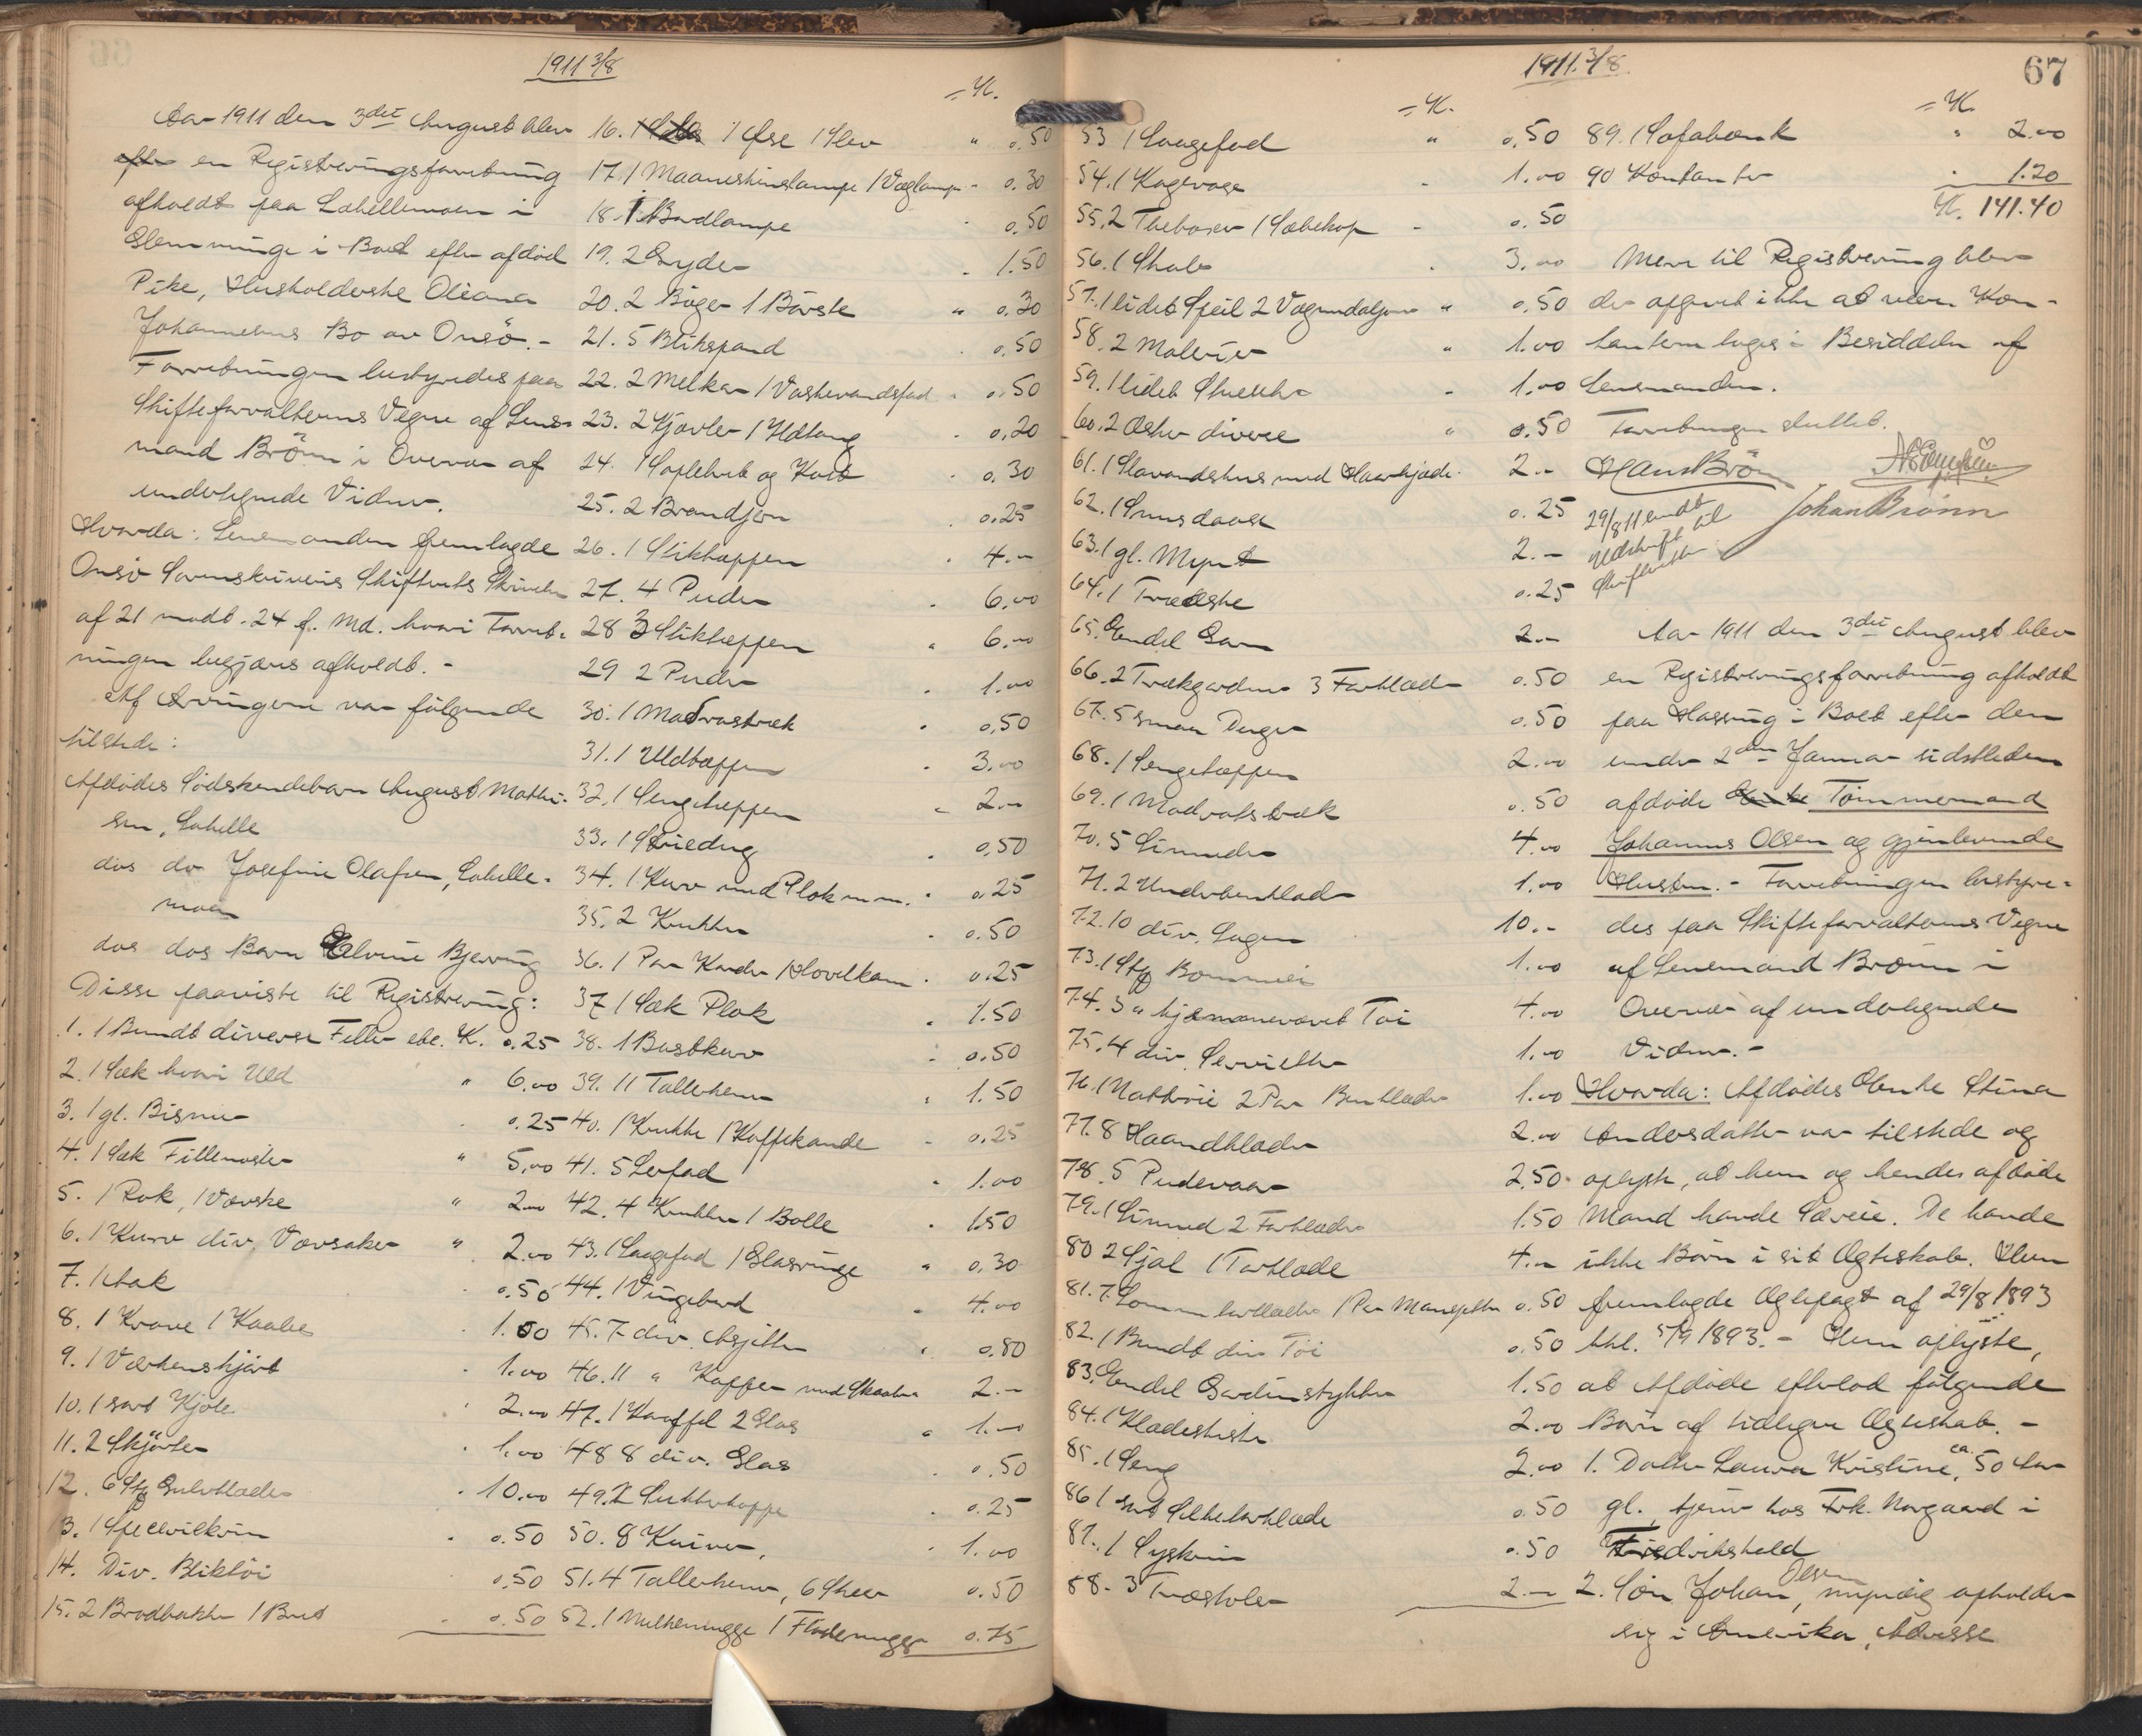 1911 3/8
Aar 1911 den 3die August blev
efter en Registreringsforretning
afholdt paa Labellemoen i
Glemminge i Boet efter afdød
Pike, Husholderske Oleana
Johannesens Bo av Onsö.-
Forretningen bestyredes paa
Skifteforvalterens Vegne af Lens-
mand Brönn i Overvær af
undertegnede Vidner.
Hvorda: Lensmanden fremlagde
Onsö Sorenskriveris Skifterets Skrivelse
af 21 modt. 24 f. Md. hvori Forret-
ningen begjæres afholdt.-
Af Arvingerne var følgende
tilstede:
Afdødes Södskendebarn August Mathi-
sen, Labelle
dos do Josefine Olafsen, Labelle-
moen
dos dos Barn Elvine Bjerring
Disse paaviste til Registrering:
1. 1 Bundt diverse Feller etc. K. 0.25
2. 1 Sæk hvori Uld " 6.00
3. 1 gl. Bismer 0.25
4. 1 Sæk Fillerosker " 5.00
5. 1 Rok, 1 Vævske " 2.00
6. 1 Kurv div. Vævsaker " 2.00
7. 1 Sak 0.50
8. 1 Krave 1 Kaabe 1.00
9. 1 Verkenskjört 1.00
10. 1 sort Kjole 2.00
11. 2 Skjörter 1.00
12. 6 Stk Gulvklæder 10.00
13. 1 Speilvilkrin 0.50
14. Div. Bliktöi 0.50
15. 2 Brødbakker 1 Bret 0.50
Kr.
16. 1 Øse 1 Slev " 0.50
17. 1 Maaneskinslampe 1 Væglampe - 0.30
18. 1 Bordlampe 0.50
19. 2 Gryder 1.50
20. 2 Böger 1 Börste " 0.30
21. 5 Blikspand 0.50
22. 2 Melkar 1 Vaskevandsfad 0.50
23. 2 Kjævler 1 Ildtang 0.20
24. 1 Soplebret og Kost 0.30
25. 2 Brendjern 0.25
26. 1 Stiktæppen 4.-
27. 4 Puder 6.00
28 3 Stiktæppen " 6.00
29 2 Puder 1.00
30. 1 Madrastræk 0.50
31. 1 Uldtæppen 3.00
32. 1 Sengetæppen 2.-
33. 1 Striedug 0.50
34. 1 Kurv med Plok m.m. 0.25
35. 2 Krukker 0.50
36. 1 Par Karder 1 Hovelkam 0.25
37 1 Sæk Plok 1.50
38. 1 Bustkurv 0.50
39. 11 Tallerkener 1.50
40. 1 Krukke 1 Kaffekande 0.25
41. 5 Lerfad 1.00
42. 4 Krukker 1 Bolle 1.50
43. 1 Laagefad 1 Glasringe " 0.30
44. 1 Vingebord 4.00
45. 7 div. Asjetter 0.80
46. 11 " Kopper med Skaaler 2.-
47. 1 Karaffel 2 Glas 1.-
48 8 div. Glas 0.50
49. 2 Sukkerkoppe 0.25
50. 8 Kniver, 1.00
51. 4 Tallerkener, 6 Skeer 0.50
52. 1 Melkemugge 1 Flødemugge 0.75
1911. 3/8.
67
Kr.
53 1 Laagefad " 0.50
54. 1 Kagevase 1.00
55. 2 Thebokser 1 Sæbekop - 0.50
56. 1 Skab 3.00
57. 1 lidet Speil 2 Vægmedaljoner " 0.50
58. 2 Malerier " 1.00
59. 1 lidet Skuesk 1.00
60. 2 Æsker diverse " 0.50
61. 1 Slavandshus med Haarkjæde 2.-
62. 1 Snusdaase 0.25
63. 1 gl. Mynt 2.-
64. 1 Træeske 0.25
65. Endel Garn 2.-
66. 2 Trækgardiner 3 Forklæder 0.50
67. 5 smaa Duger 0.50
68. 1 Sengetæppen 2.00
69. 1 Madrastræk 0.50
70. 5 Linneder 4.00
71. 2 Underbenklæder 1.00
72. 10 div. Lagen 10.-
73. 1 Stk Bommesi 1.00
74. 3 " hjemmevævet Töi 4.00
75. 4 div. Servietter 1.00
76. 1 Nattröie 2 Par Benklæder 1.00
77. 8 Haandklæder 2.00
78. 5 Pudevaar 2.50
79. 1 Linned 2 Forklæder 1.50
80 2 Sjal 1 Forklæde 4.-
81. 7 Lommetørklæder 1 Par Mansjetter 0.50
82. 1 Bundt div Töi 0.50
83. Endel Gardinstykker 1.50
84. 1 Klædeskiste 2.00
85. 1 Seng 2.00
86 1 sort Silketørklæde 0.50
87. 1 Syskrin 0.50
88. 3 Træstoler 2.-
Kr.
89. 1 Sofabænk " 2.00
90 Kontanter 1.20
Kr. 141.40
Mere til Registrering blev
der opgivet ikke at være Kon-
tanterne toges i Besiddelse af
Lensmanden.
Forretningen sluttet.
Hans Brön
Johan Brönn
29/8 11 sendt
Udskrift til
Skifteretten
Aar 1911 den 3die August blev
en Registreringsforretning afholdt
paa Hassing i Boet efter den
under 2den Januar sidstleden
afdøde Tömmermand
Johannes Olsen og gjenlevende
Hustru.- Forretningen bestyre-
des paa Skifteforvalterens Vegne
af Lensmand Brönn i
Overvær af undertegnede
Vidner.-
Hvorda: Afdødes Enke Stina
Andersdatter var tilstede og
oplyste, at hun og hendes afdøde
Mand havde Særeie. De havde
ikke Börn i sit Ægteskab. Hun
fremlagde Ægtepagt af 29/8 1893
thl. 5/9 1893.- Hun oplyste,
at Afdøde efterlod følgende
Börn af tidligere Ægteskab.-
1. Datter Laura Kristine, ca. 50 Aar
gl., tjener hos Frk. Norgaard i
Fredrikshald
2. Sön Johan Olsen, myndig opholder
sig i Amerika, Adresse